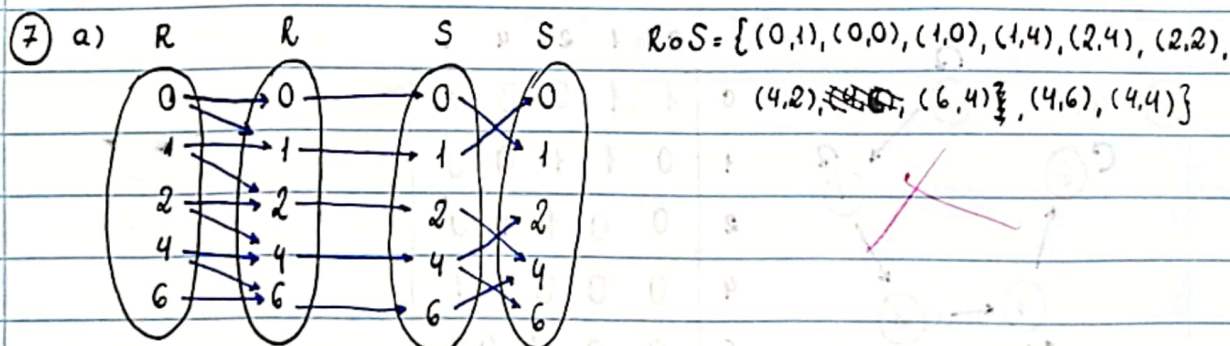 7 a) R R S S R∘S = {(0,1), (0,0), (1,0), (1,4), (2,4), (2,2),
0 0 0 0 (4,2), (6,4), (4,6), (4,4)}
1 1 1 1
2 2 2 2
4 4 4 4
6 6 6 6